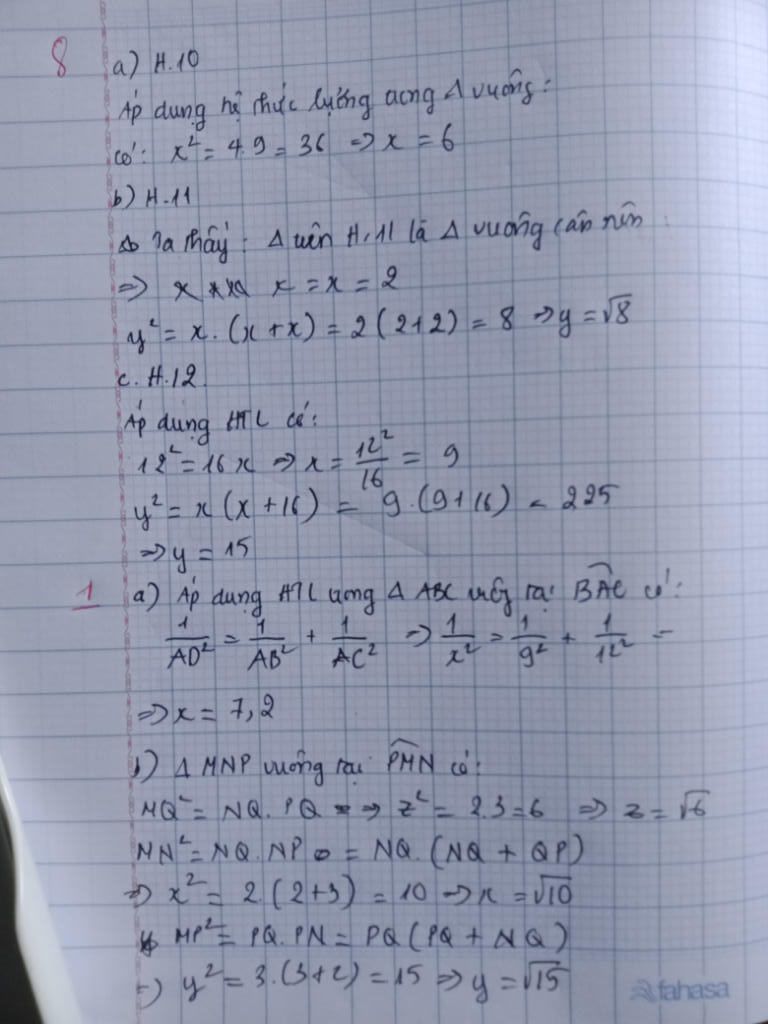 8 a) H.10
Áp dụng hệ thức lượng trong Δ vuông:
có: x² = 4.9 = 36 => x = 6
b) H.11
Ta thấy: Δ trên H.11 là Δ vuông cân nên:
=> x = x = 2
y² = x.(x+x) = 2(2+2) = 8 => y = √8
c. H.12
Áp dụng HTL có:
12² = 16x => x = 12²/16 = 9
y² = x(x+16) = 9.(9+16) = 225
=> y = 15
1 a) Áp dụng HTL trong Δ ABC vuông tại BAC có:
1/AD² = 1/AB² + 1/AC² => 1/x² = 1/9² + 1/12² =
=> x = 7,2
b) Δ MNP vuông tại PMN có:
MQ² = NQ.PQ => z² = 2.3=6 => z = √6
MN² = NQ.NP = NQ.(NQ + QP)
=> x² = 2.(2+3) = 10 => x = √10
MP² = PQ.PN = PQ(PQ + NQ)
=> y² = 3.(3+2) = 15 => y = √15
fahasa